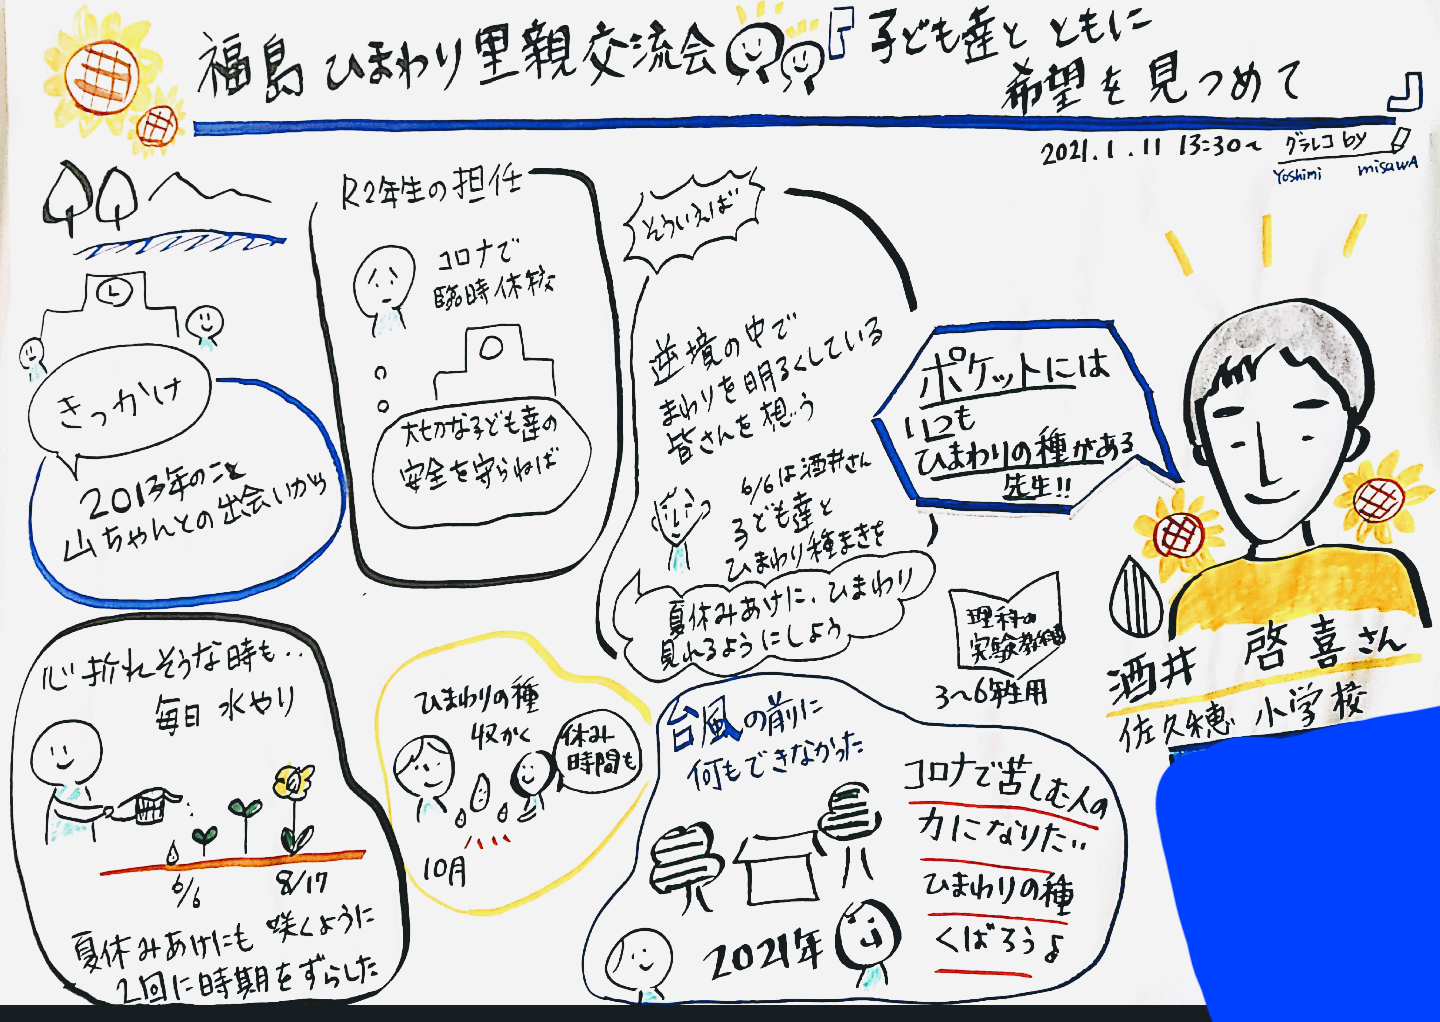 福島 ひまわり里親交流会
『子ども達と ともに
希望を見つめて』
2021.1.11 13:30〜 グラレコ by
Yoshimi misawA
きっかけ
2013年のこと
山ちゃんとの出会いから
R2年生の担任
コロナで
臨時休校
大切な子ども達の
安全を守らねば
そういえば
逆境の中で
まわりを明るくしている
皆さんを想う
6/6は酒井さん
子ども達と
ひまわり種まきを
夏休みあけに、ひまわり
見れるようにしよう
ポケットには
いつも
ひまわりの種がある
先生!!
理科の
実験教材
3〜6年生用
酒井 啓喜さん
佐久穂 小学校
心折れそうな時も‥
毎日 水やり
6/6
8/17
夏休みあけにも 咲くように
2回に時期をずらした
ひまわりの種
収かく
休み
時間も
10月
台風の前に
何もできなかった
2021年
コロナで苦しむ人の
力になりたい
ひまわりの種
くばろう♪